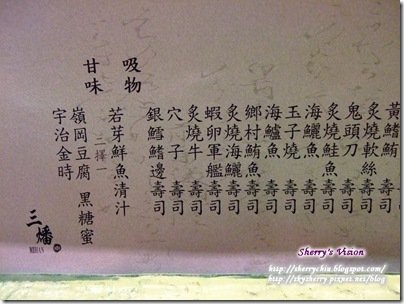 黃鮪 壽司
炙燒軟絲 壽司
鬼頭刀 壽司
炙燒鮭魚 壽司
海鱺魚 壽司
玉子燒 壽司
海鱸魚 壽司
鄉村鮪魚 壽司
炙燒海鱺 壽司
蝦卵軍艦 壽司
炙燒牛 壽司
穴子 壽司
銀鱈鰭邊 壽司
吸物
若芽鮮魚清汁
甘味
三擇一
嶺岡豆腐 黑糖蜜
宇治金時
三燔
MIHAN
Sherry's Vision
http://sherrychiu.blogspot.com/
http://skysherry.pixnet.net/blog